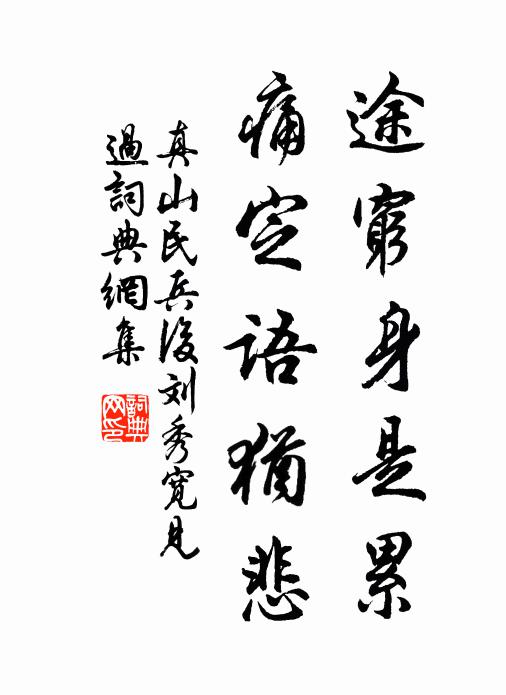 途窮身是累
痛定語猶悲
真山民兵後刘秀寛見
過詞典網集
詞典
网印